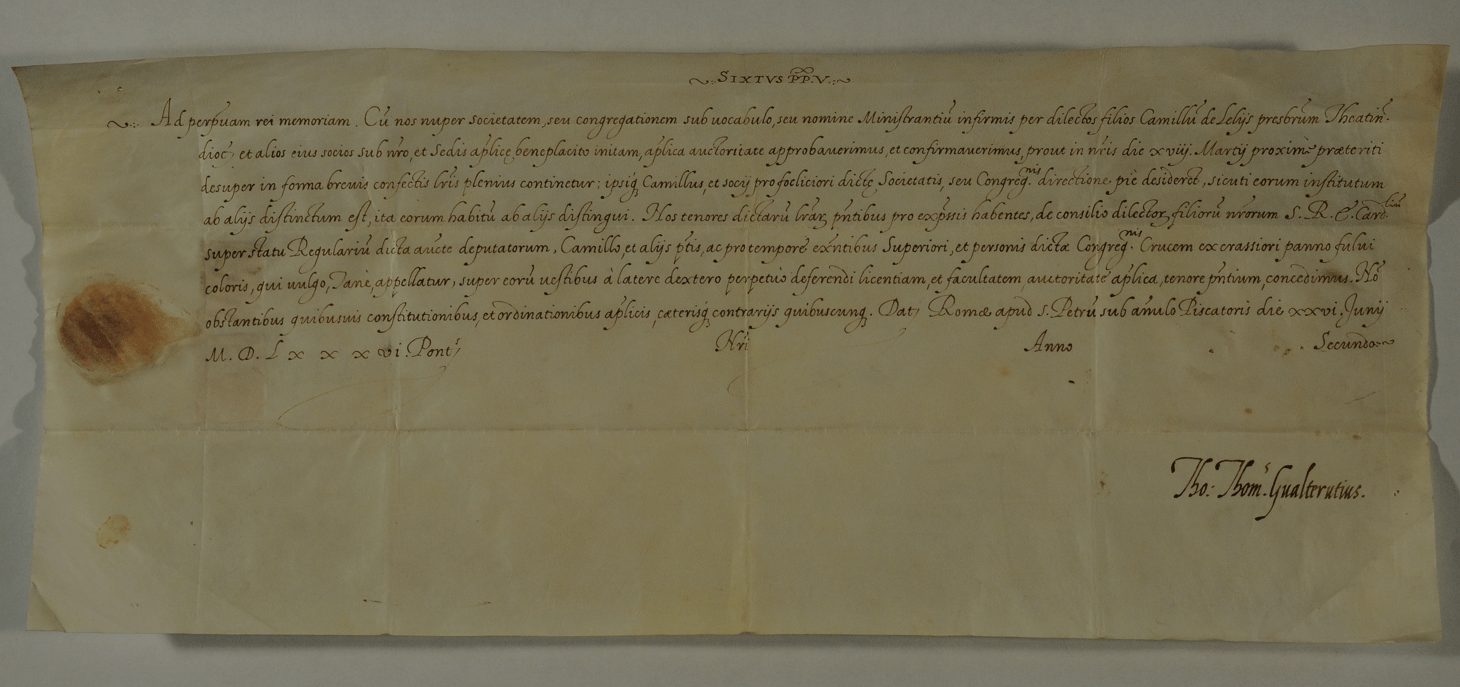 SIXTVS PP. V.
Ad perp̃uam rei memoriam. Cũ nos nuper societatem, seu congregationem sub uocabulo, seu nomine Ministrantiũ infirmis per dilectos filios Camillũ de Lelijs presbr̃um Theatiñ.
dioc̃, et alios eius socios sub nr̃o, et Sedis ap̃lice beneplacito initam, ap̃lica auctoritate approbauerimus, et confirmauerimus, prout in nr̃is die xviij. Martij proximè præteriti
desuper in forma breuis confectis lr̃is plenius continetur: ipsiq; Camillus, et socij pro foeliciori dictę Societatis, seu Congreg.nis directione piè desideret, sicuti eorum institutum
ab alijs distinctum est, ita eorum habitũ ab alijs distingui. Nos tenores dictarũ lr̃arꝝ pñtibus pro exp̃ssis habentes, de consilio dilectorꝝ filiorũ nr̃orum S. R. E. Card.lium
super statu Regulariũ dicta aucte deputatorum, Camillo, et alijs p̃tis, ac pro tempore exñtibus Superiori, et personis dictæ Congreg.nis Crucem ex crassiori panno fului
coloris, qui uulgo, Tanè, appellatur, super eorũ uestibus à latere dextero perpetuò deferendi licentiam, et facultatem auctoritate ap̃lica, tenore pñtium, concedimus. Nõ
obstantibus quibusuis constitutionibus, et ordinationibus ap̃licis, cæterisq; contrarijs quibuscunq. Dat̃ Romæ apud S. Petrũ sub anulo Piscatoris die xxvi. Junij
M. D. L x x x vi. Pont̃ Nr̃i Anno Secundo
Tho: Thom.s Gualterutius.